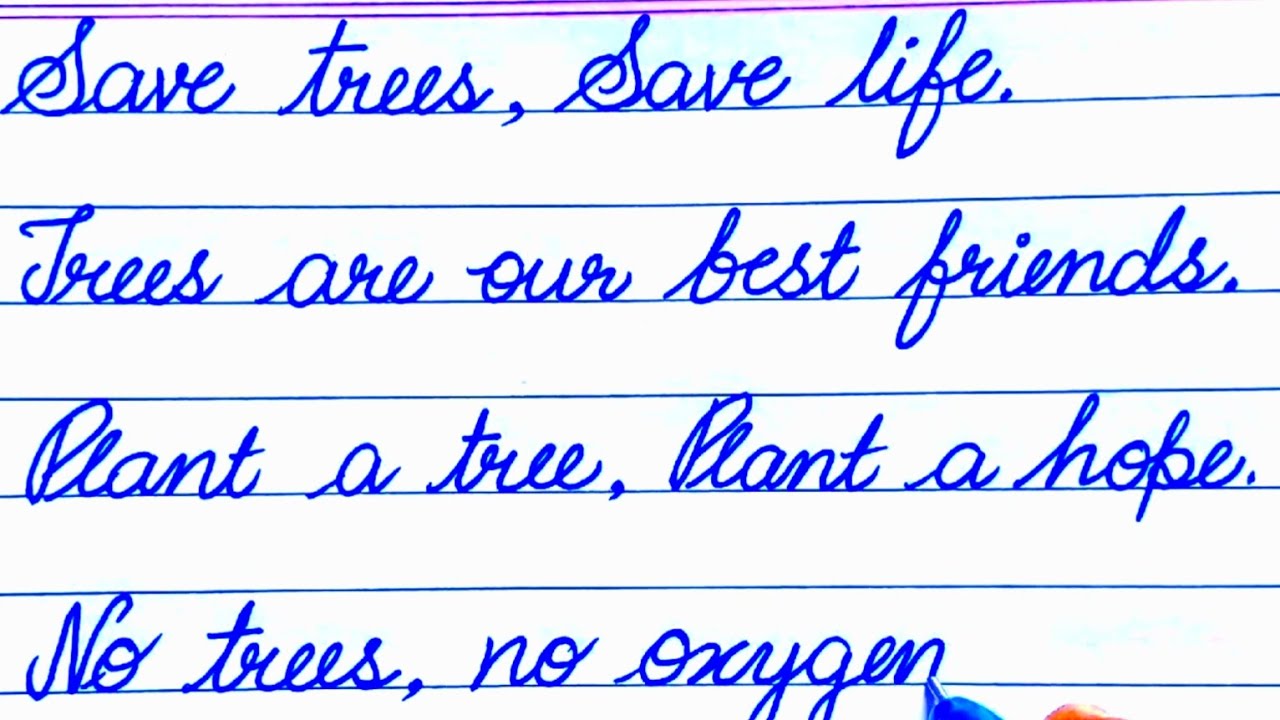 Save trees, Save life.
Trees are our best friends.
Plant a tree, Plant a hope.
No trees, no oxygen